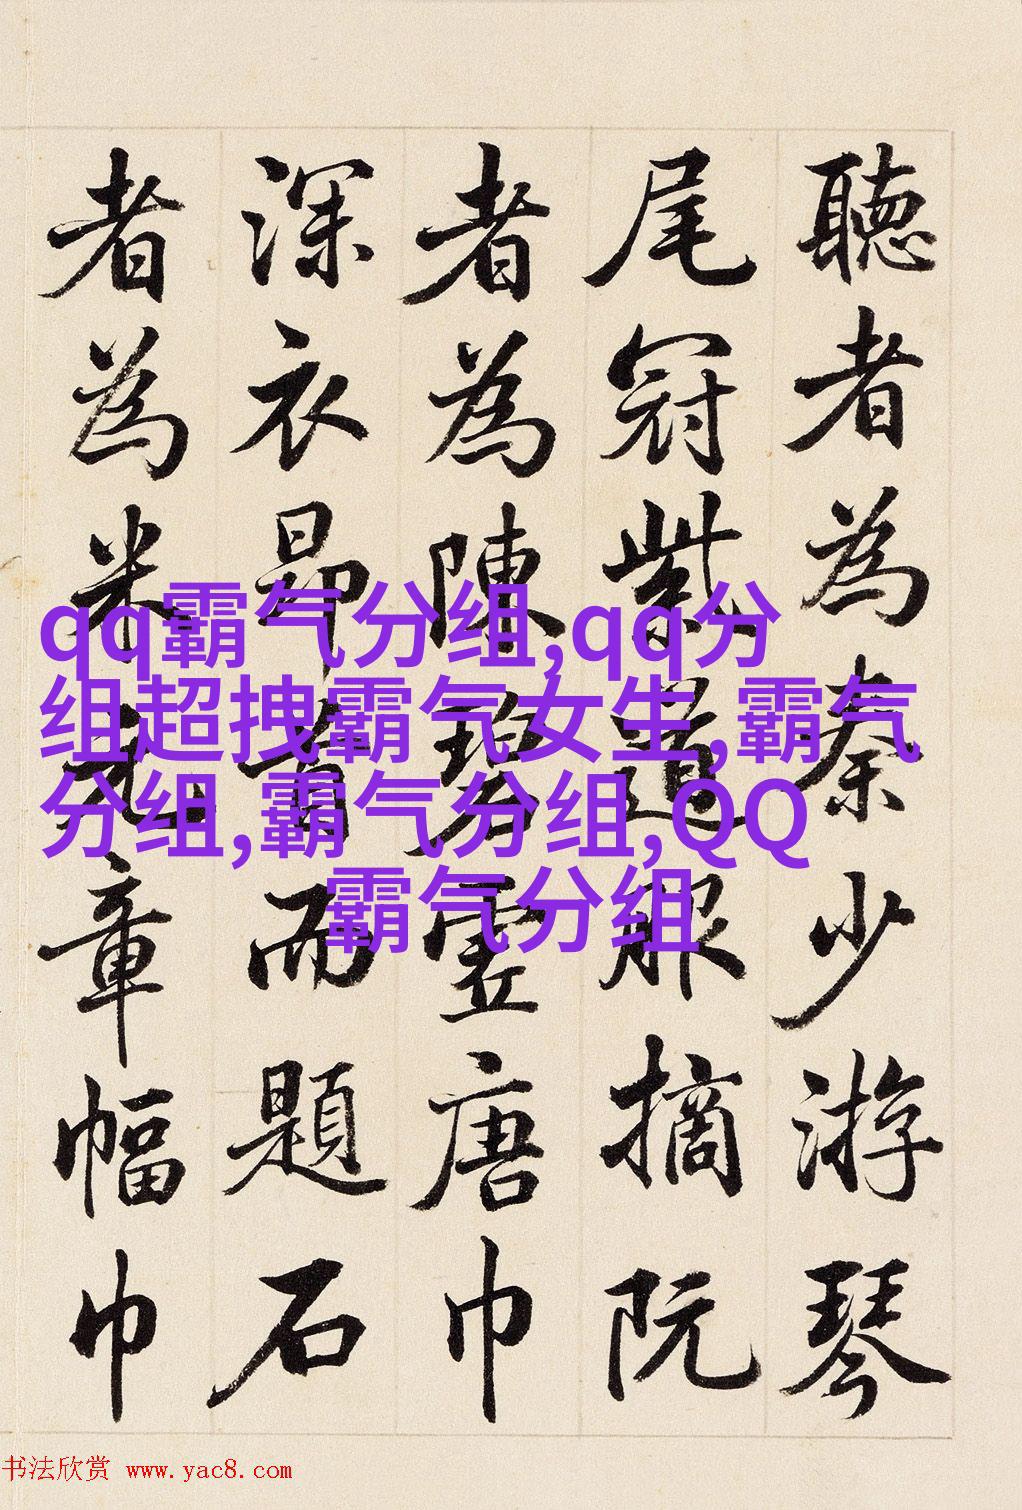 聽者為秦少游琴
尾冠紫道服摘阮
者為陳碧虛唐巾
深衣昂首而題石
者為米元章幅巾
qq霸气分组,qq分
组超拽霸气女生,霸气
分组,霸气分组,QQ
霸气分组
书法欣赏 www.yac8.com